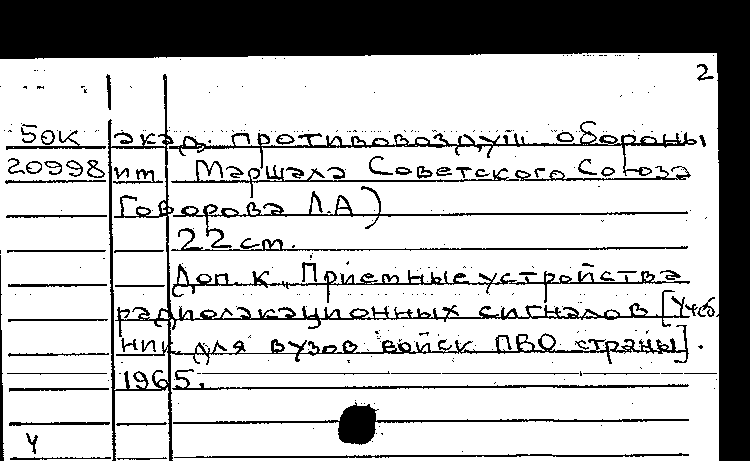 2
50к акад. противовоздуш обороны
20998 им. Маршала Советского Союза
Говорова Л.А)
22 см.
Доп. к „Приемные устройства
радиолакационных сигналов [Учеб.
ник для вузов войск ПВО страны].
1965.
Ч